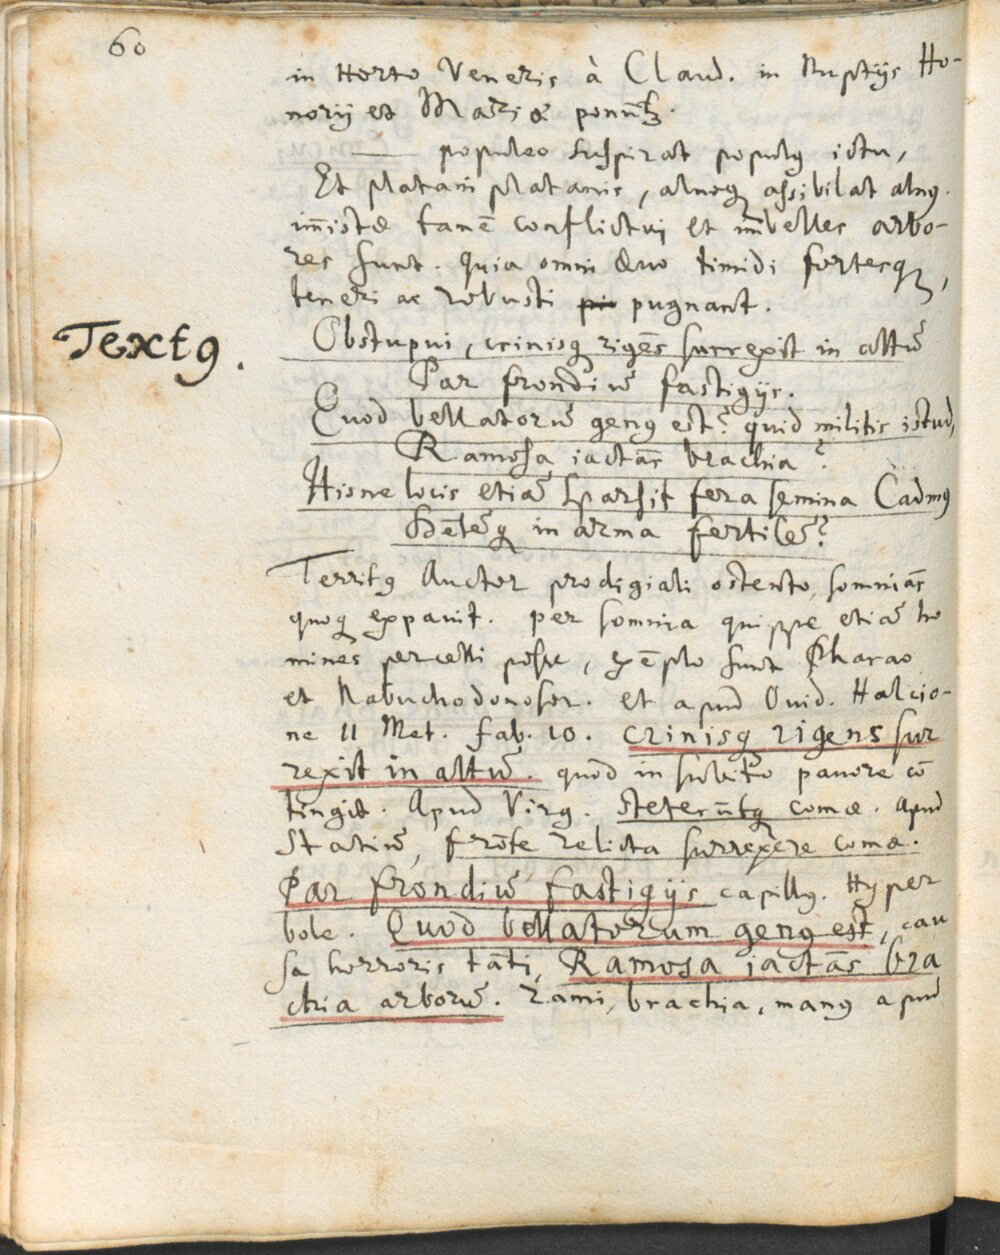 60
in Horto Veneris à Claud. in Nuptijs Ho-
norij et Mariæ ponūtꝫ.
populeo suspirat populꝰ ictu,
Et platani platanis, alnoqꝫ assibilat alnꝰ.
im̄istæ tamē conflictui et im̄belles arbo-
res sunt. quia omni ævo timidi fortesqꝫ,
teneri ac robusti pugnant.
Textꝰ.
Obstupui, crinisqꝫ rigēs surrexit in altū
Par frondiū fastigijs.
Quod bellatorū genꝰ est? quid militis istud,
Ramosa iactās brachia?
Hisne locis etiā sparsit fera semina Cadmꝰ
Dētēqꝫ in arma fertilē?
Territꝰ Auctor prodigiali ostento, somniās
quoqꝫ expavit. per somnia quippe etiā ho
mines percelli posse, exēplo sunt Pharao
et Nabuchodonosor. et apud Ovid. Halcio-
ne 11 Met. fab. 10. crinisqꝫ rigens sur
rexit in altū. quod in subito pavore cō
tingit. Apud Virg. steterūtqꝫ comæ. apud
Statiū, frōte relicta surrexere comæ.
Par frondiū fastigijs capillꝰ. Hyper
bole. Quod bellatorum genꝰ est, cau
sa horroris tāti, Ramosa iactās bra
chia arborū. rami, brachia, manꝰ apud